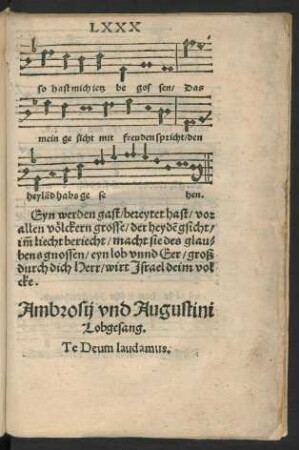 LXXX
so hast mich ietz be gos sen/Das
mein ge sicht mit freuden spricht/den
heylād habs ge se hen.
Eyn werden gast/bereytet hast/vor
allen völckern grosse/der heydē gsicht/
im̄ liecht bericht/macht sie des glau-
bens gnossen/eyn lob vnnd Eer/groß
durch dich Herr/wirt Israel deim vol
cke.
Ambrosij vnd Augustini
Lobgesang.
Te Deum laudamus.